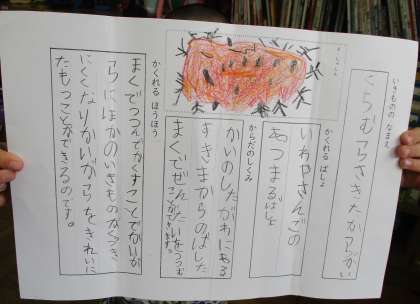 いきもののなまえ
くちむらさきたからがい
かくれる ばしょ
いわやさんごの
あつまるばしょ
からだのしくみ
かいのしたがわにある
すきまからのばした
まくでぜんたいをつつむ
ことができます。
かくれる ほうほう
まくでつつんでかくすことでかいが
らにほかのいきものがつき
にくくなりかいがらをきれいに
たもつことができるのです。